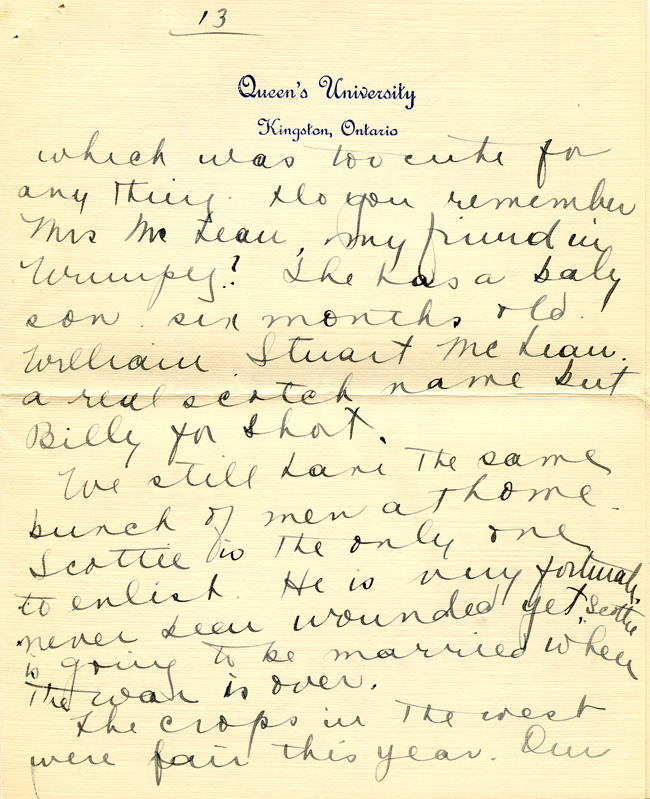 13
Queen's University
Kingston, Ontario
which was too cute for
any thing. Do you remember
Mrs McLean, my friend in
Winnipeg? She has a baby
son six months old.
William Stuart McLean.
a real scotch name but
Billy for short.
We still have the same
bunch of men at home.
Scottie is the only one
to enlist. He is very fortunate,
never been wounded yet. Scottie
is going to be married when
the war is over.
The crops in the west
were fair this year. Our